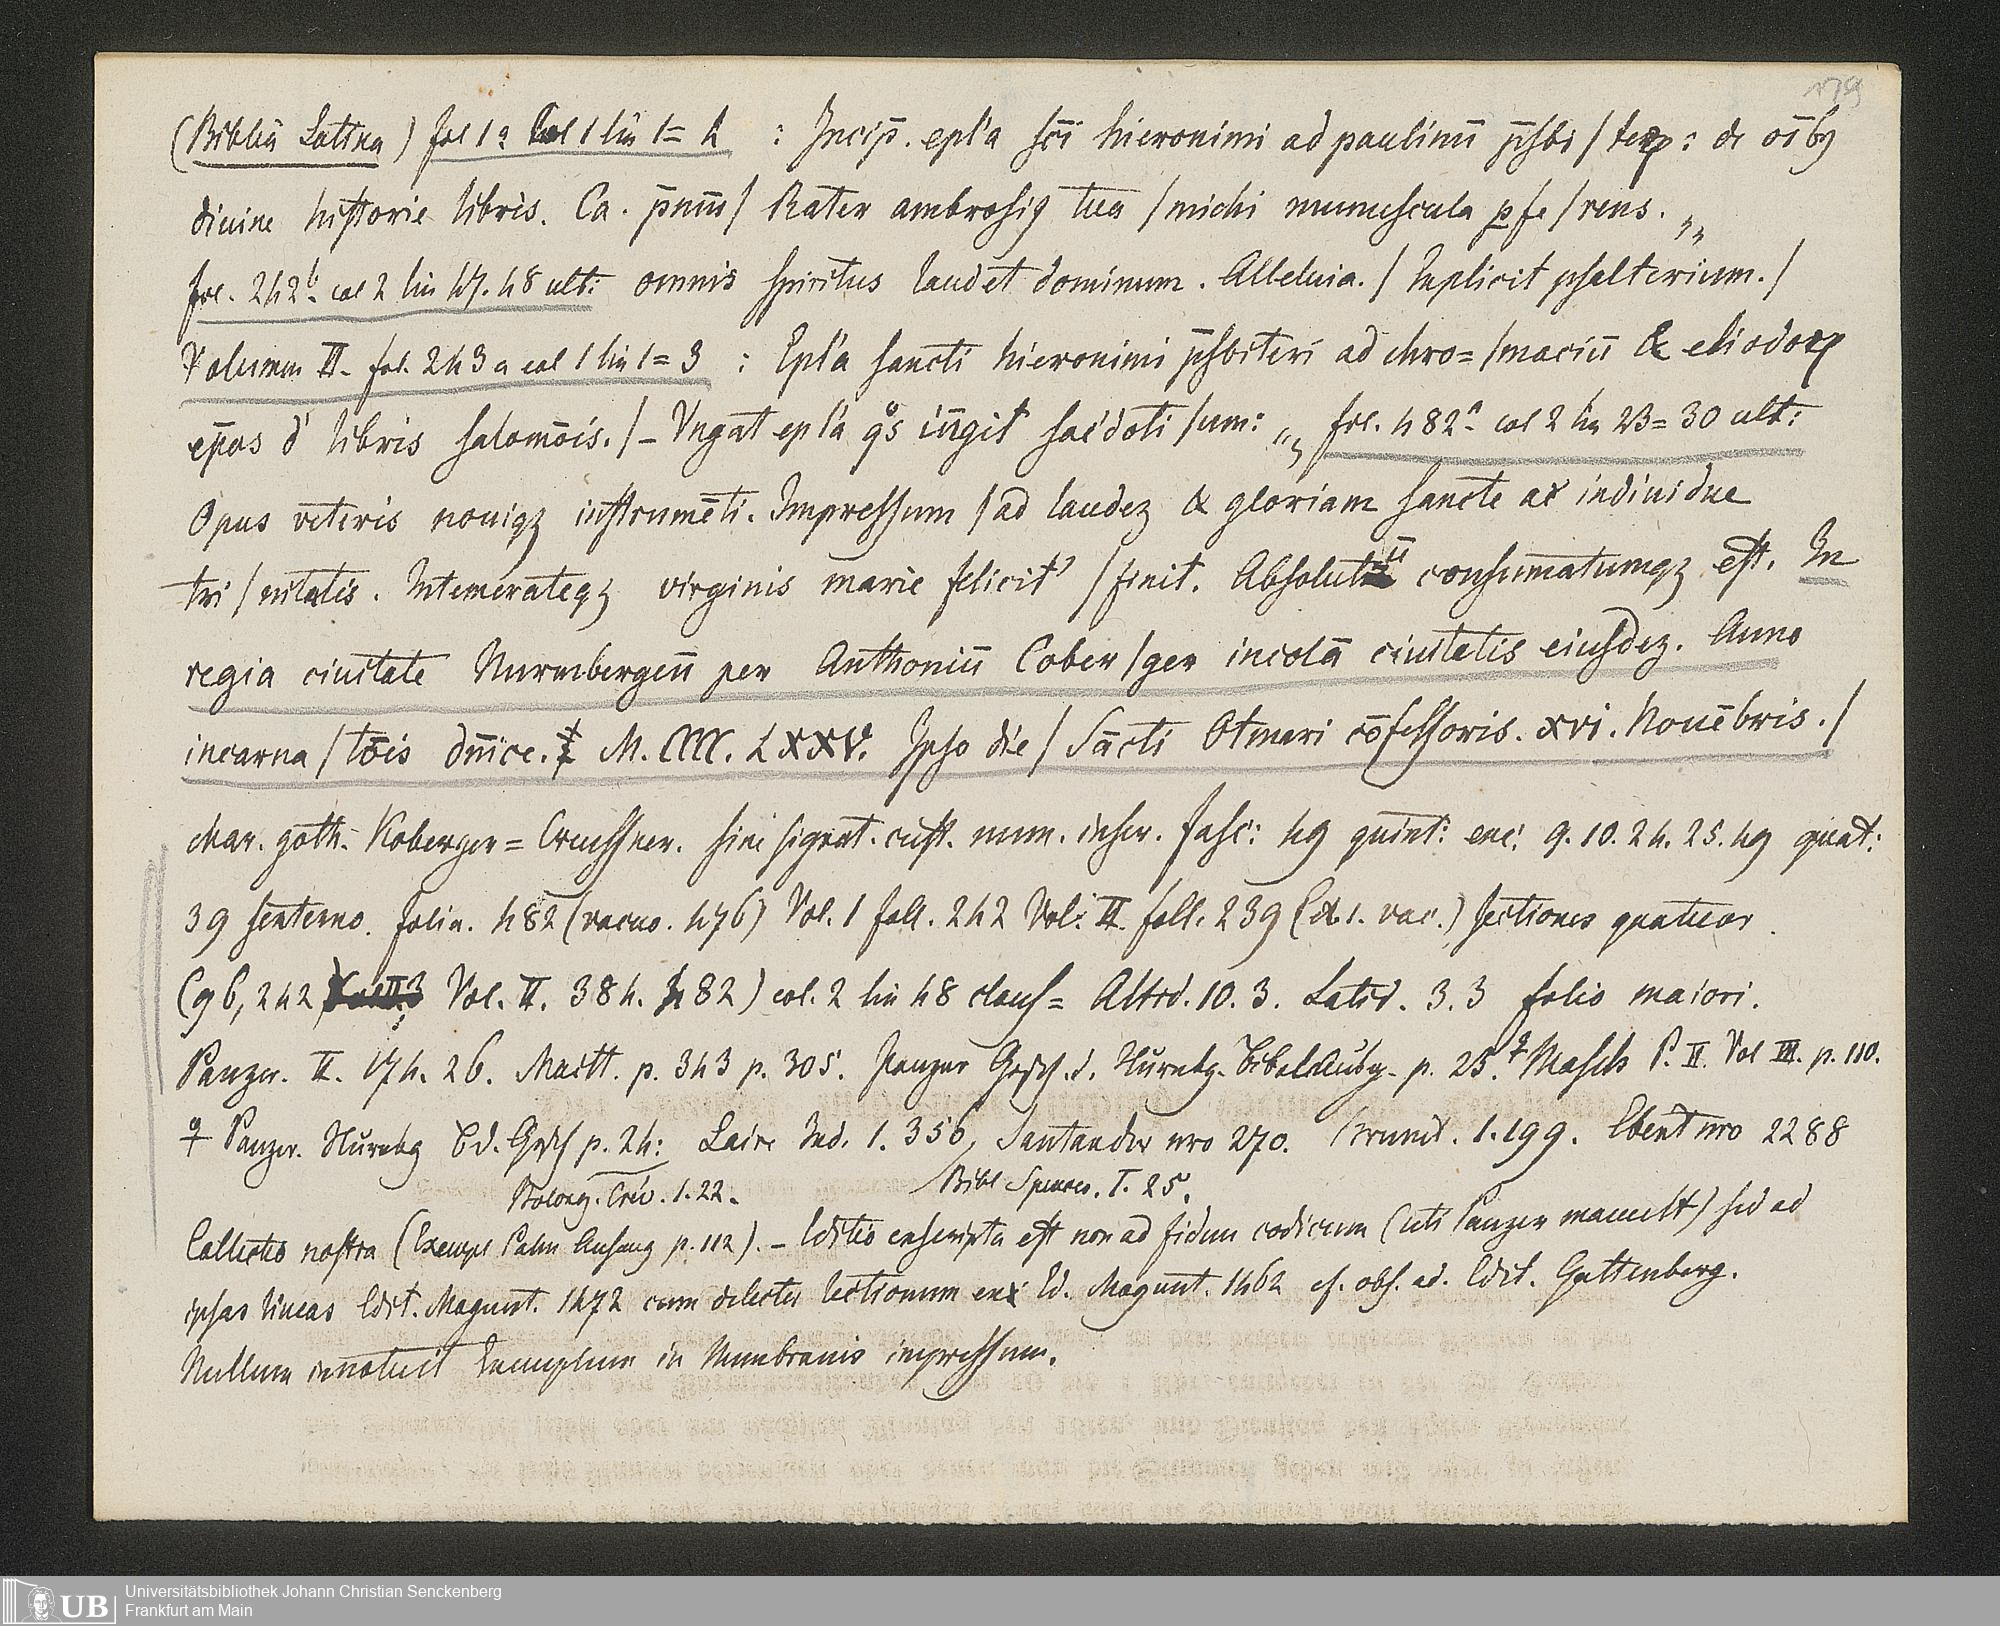 179
(Biblia Latina) fol 1a Col 1 lin 1=4 : Incip̄. epl'a sc̄i hieronimi ad paulinū p̄sbi/terꝝ: de oībꝰ
diuine historie libris. Ca. p̄mū/ Rater ambrosiꝰ tua /michi munuscula ꝑfe/rens.
fol. 242b. col 2 lin 47. 48 ult: omnis spiritus laudet dominum. Alleluia. / Explicit psalterium. /
Volumen II. fol. 243a col 1 lin 1=3 : Epl'a sancti hieronimi p̄sbiteri ad chro=/maciū & eliodoꝝ
ep̄os d' libris salomōis. /– Vngat epl'a qͦs iūgit sac'doti/um: fol. 482a. col 2 lin 23=30 ult:
Opus veteris nouiqꝫ instrumēti. Impressum /ad laudeꝫ & gloriam sancte ac indiuidue
tri/nitatis. Intemerateqꝫ virginis marie felicit' /finit. Absolutū consumatumqꝫ est. In
regia ciuitate Nurmbergeñ per Anthoniū Cober/ger incolā ciuitatis eiusdeꝫ. Anno
incarna/tōis dn̄ice. M. CCCC. LXXV. Ipso die / Sācti Otmari cōfessoris. xvi. Nouēbris. /
char. goth. Koberger=Creussner. sine signat. cust. num. inscr. fasc: 49 quint: exc: 9. 10. 24. 25. 49 quat:
39 senterno. folia. 482 (vacuo. 476) Vol. 1 foll. 242 Vol: II. foll. 239 (Et 1. vac.) sectiones quatuor.
(96, 242 Vol. II. 384. 482) col. 2 lin 48 claus= Altid. 10. 3. Latid. 3. 3 folio maiori.
Panzer. II. 174. 26. Maitt. p. 343 p. 305. Panzer Gesch. d. Nürnbg. Bibelausg. p. 25. Masch P. II. Vol III. p. 110.
Panzer. Nürnbg Bd. Gesch p. 24: Laire Ind. 1. 356, Santander nro 270. Brunet. 1. 199. Ebert nro 2288
Bolong. Crev. 1. 22. Bibl Spencer. T. 25.
Collectio nostra (Exempl Palm Ansang p. 112). – Editio exscripta est non ad fidem codicum (uti Panzer mauult) sed ad
ipsas lineas Edit. Magunt. 1472 cum delectu lectionum ex Ed. Magunt. 1462 cf. obs. ad. Edit. Guttenberg.
Nullum innotuit Exemplum in Membranis impressum.
UB Universitätsbibliothek Johann Christian Senckenberg
Frankfurt am Main